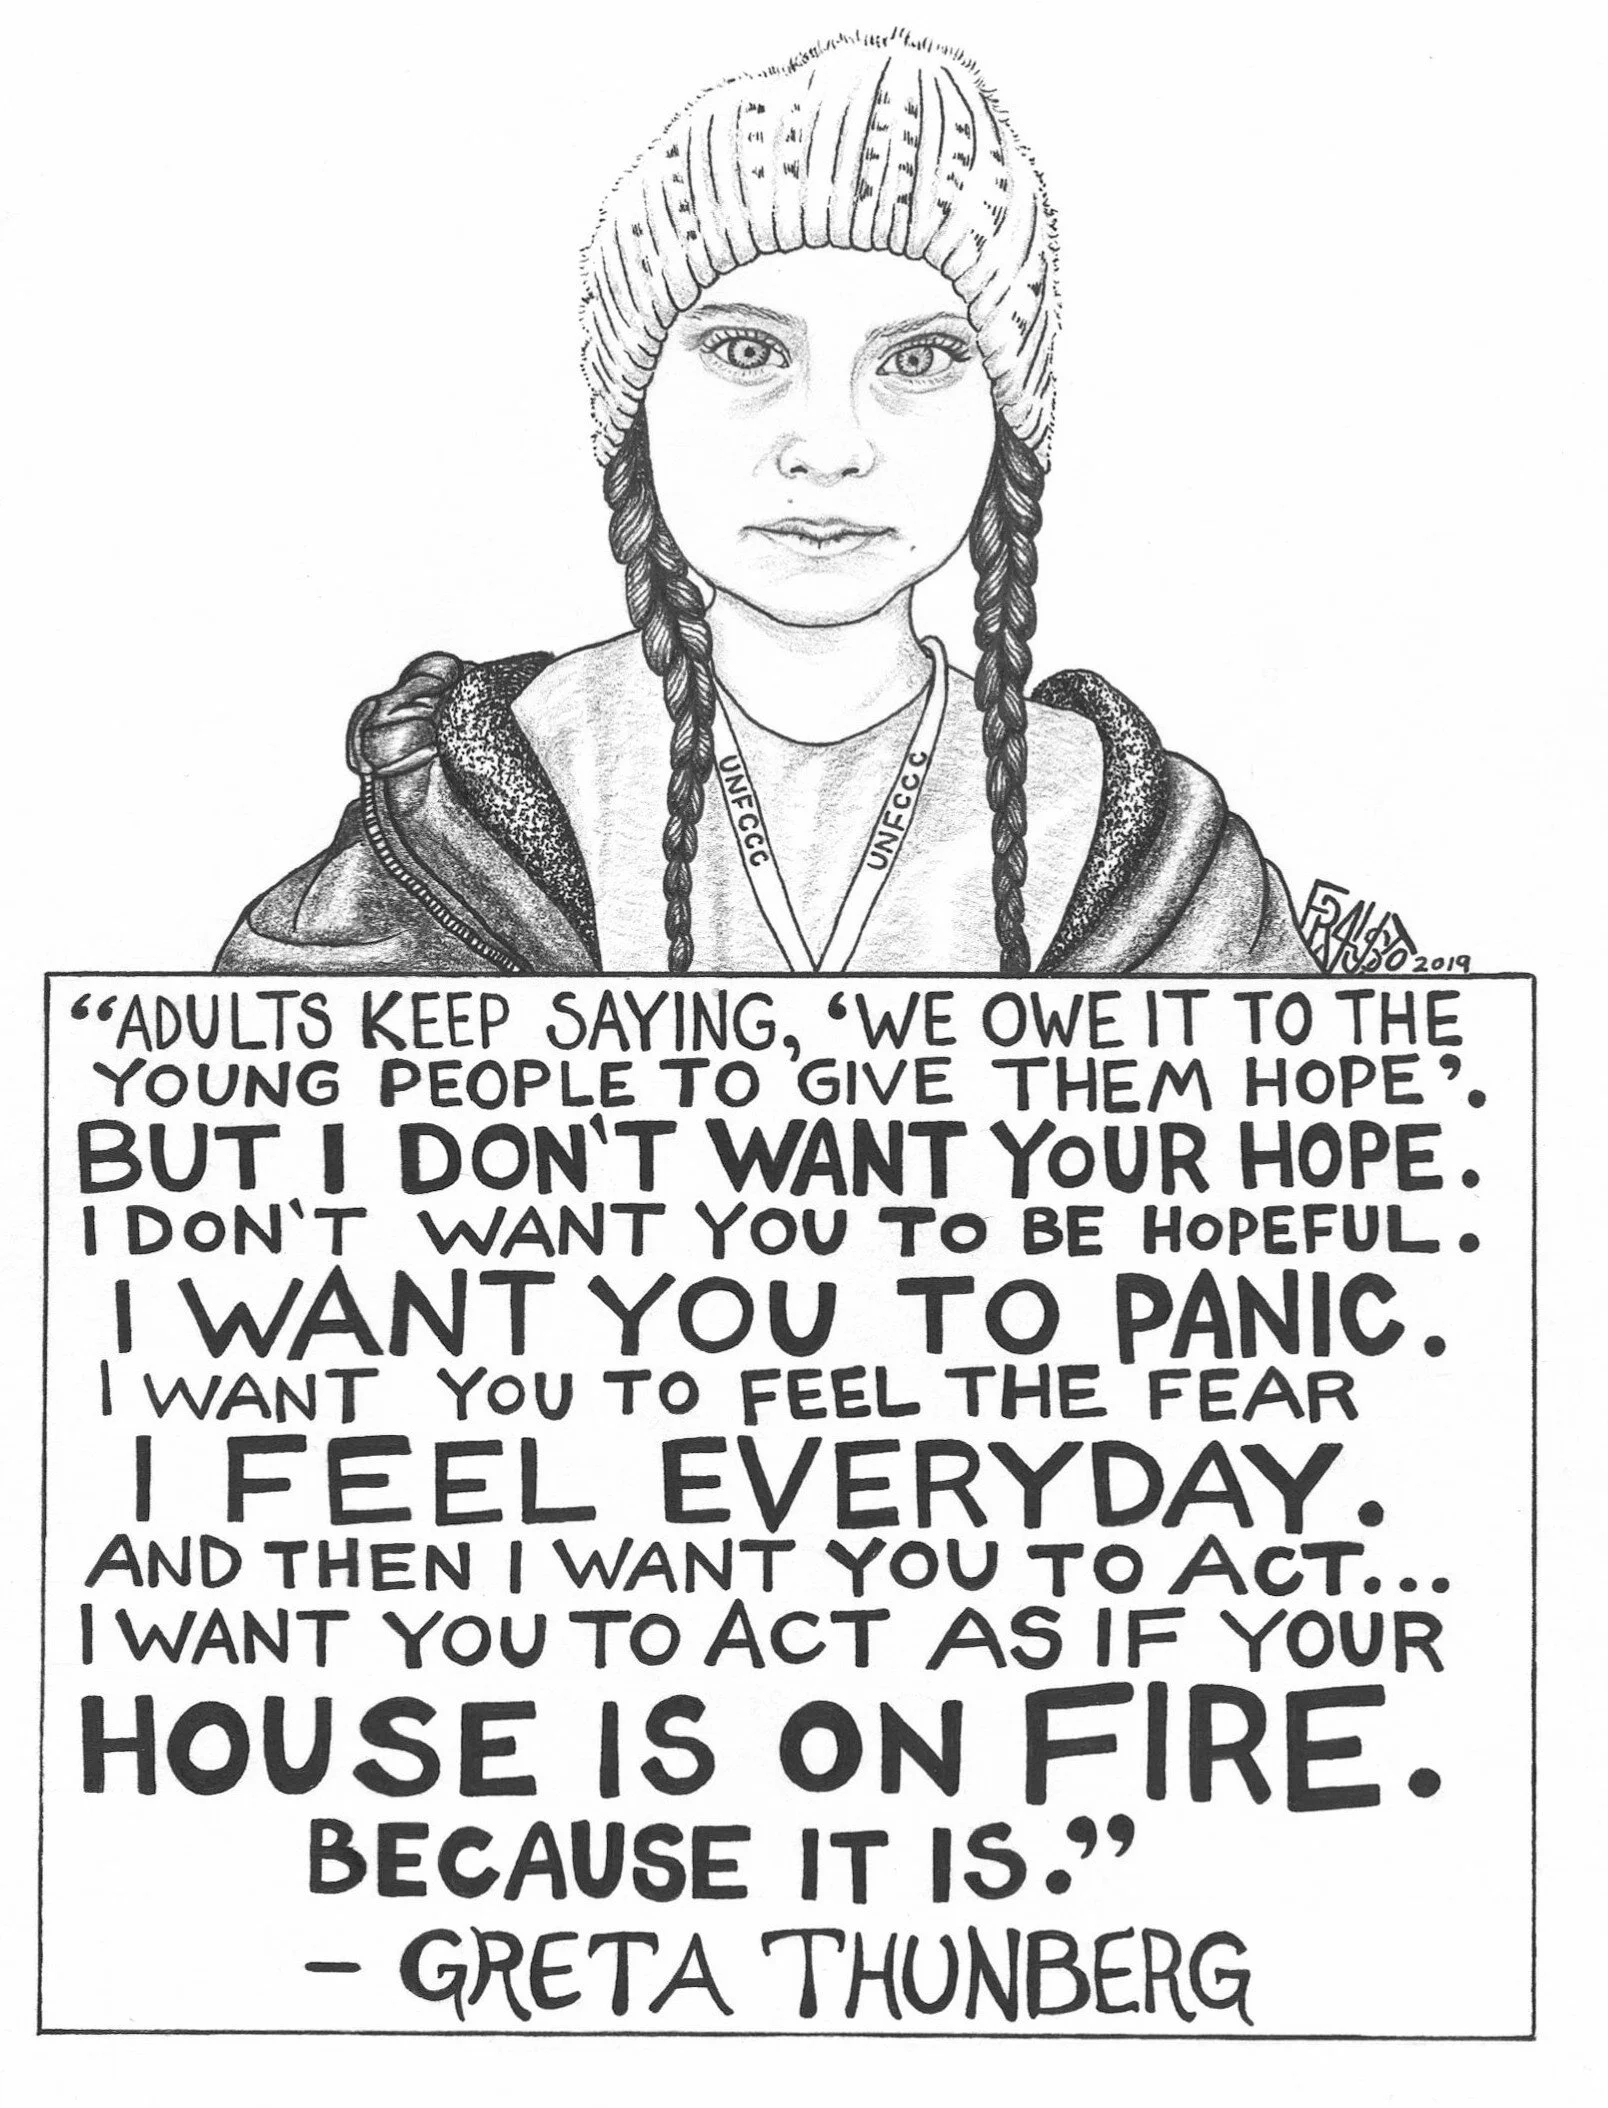 UNFCCC
UNFCCC
FRAUSTO 2019
“ADULTS KEEP SAYING, ‘WE OWE IT TO THE
YOUNG PEOPLE TO GIVE THEM HOPE’.
BUT I DON'T WANT YOUR HOPE.
I DON'T WANT YOU TO BE HOPEFUL.
I WANT YOU TO PANIC.
I WANT YOU TO FEEL THE FEAR
I FEEL EVERYDAY.
AND THEN I WANT YOU TO ACT...
I WANT YOU TO ACT AS IF YOUR
HOUSE IS ON FIRE.
BECAUSE IT IS.”
– GRETA THUNBERG